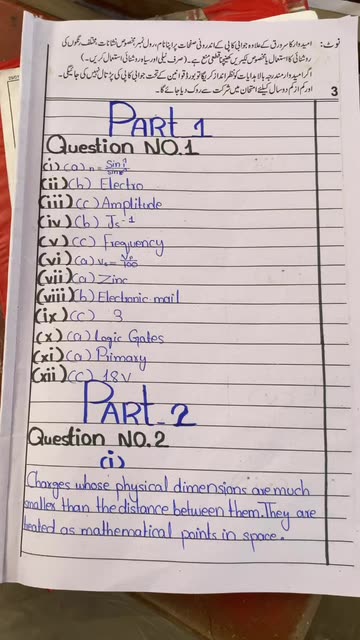 نوٹ: امیدوار کا سرورق کے علاوہ جوابی کاپی کے اندرونی صفحات پر اپنا نام، رول نمبر، مخصوص نشانات، مختلف رنگوں کی
روشنائی کا استعمال یا مخصوص لکیریں کھینچنا قطعی منع ہے۔ (صرف نیلی اور سیاہ روشنائی استعمال کریں۔)
اگر امیدوار مندرجہ بالا ہدایات کو نظر انداز کرے گا تو بورڈ قوانین کے تحت جوابی کاپی کی پڑتال نہیں کی جائیگی۔
اور کم از کم دو سال کیلئے امتحان میں شرکت سے روک دیا جائے گا۔
3
PART 1
Question NO.1
(i) (a) n = Sin î / Sin r̂
(ii) (b) Electro
(iii) (c) Amplitude
(iv) (b) Js⁻¹
(v) (c) Frequency
(vi) (a)
(vii) (a) Zinc
(viii) (b) Electronic mail
(ix) (c) 3
(x) (a) Logic Gates
(xi) (a) Primary
(xii) (c) 18V
PART-2
Question NO.2
(i)
Charges whose physical dimensions are much
smaller than the distance between them. They are
treated as mathematical points in space.